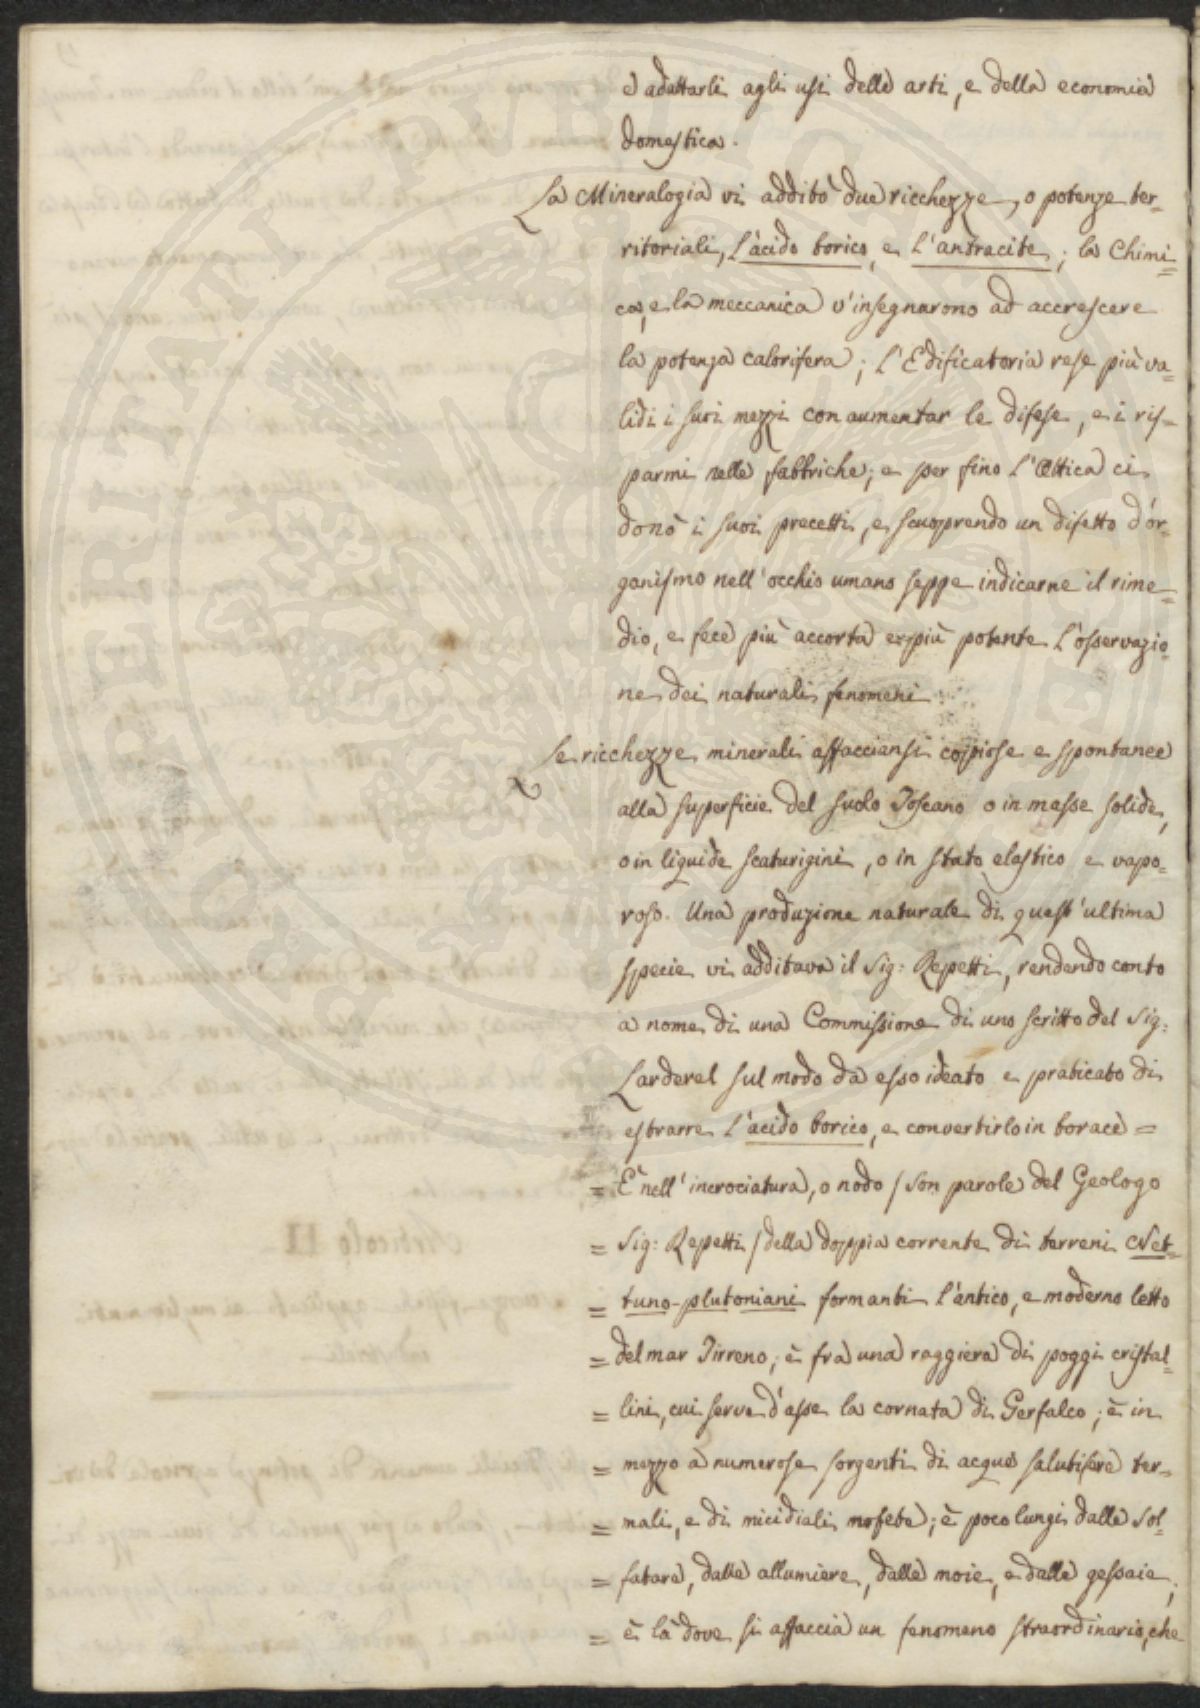 e adattarli agli usi delle arti, e della economia
domestica.
La Mineralogia vi additò due ricchezze, o potenze ter-
ritoriali, l'acido borico, e l'antracite; la Chimi=
ca, e la meccanica v'insegnarono ad accrescere
la potenza calorifera; l'Edificatoria rese più va=
lidi i suoi mezzi con aumentar le difese, e i ris=
parmi nelle fabbriche; e per fino l'Ottica ci
donò i suoi precetti, e scuoprendo un difetto d'or-
ganismo nell'occhio umano seppe indicarne il rime=
dio, e fece più accorta e più potente l'osservazio=
ne dei naturali fenomeni
Le ricchezze minerali affacciansi copiose e spontanee
alla superficie del suolo Toscano o in masse solide,
o in liquide scaturigini, o in stato elastico e vapo=
roso. Una produzione naturale di quest'ultima
specie vi additava il Sig: Repetti, rendendo conto
a nome di una Commissione di uno scritto del Sig:
Larderel sul modo da esso ideato e praticato di
estrarre l'acido borico, e convertirlo in borace =
= È nell'incrociatura, o nodo / son parole del Geologo
= Sig: Repetti / della doppia corrente di terreni Net=
= tuno-plutoniani formanti l'antico, e moderno letto
= del mar Tirreno; è fra una raggiera di poggi cristal=
= lini, cui serve d'asse la cornata di Gerfalco; è in
= mezzo a numerose sorgenti di acque salutifere ter=
= mali, e di micidiali mofete; è poco lungi dalle Sol=
= fatare, dalle allumiere, dalle moie, e dalle gessaie;
= è là dove si affaccia un fenomeno straordinario, che
PERITAT PVBLICE